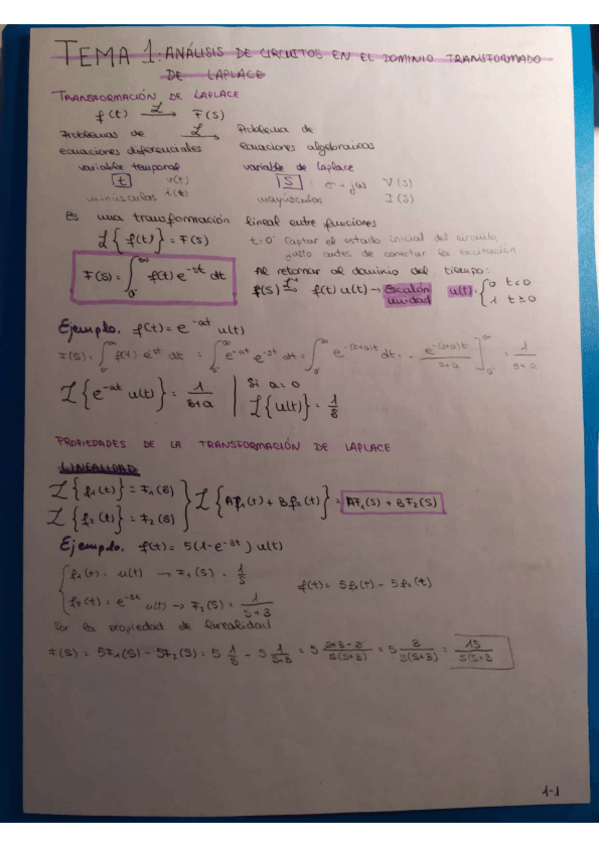 TEMA 1: ANÁLISIS DE CIRCUITOS EN EL DOMINIO TRANSFORMADO
DE LAPLACE
TRANSFORMACIÓN DE LAPLACE
f(t) ℒ→ F(s)
Problemas de ℒ→ Problema de
ecuaciones diferenciales ecuaciones algebraicas
variable temporal variable de Laplace
t v(t) S : σ - jω V(s)
minúsculas i(t) mayúsculas I(s)
Es una transformación lineal entre funciones
ℒ{f(t)} = F(s) t=0⁻ Captar el estado inicial del circuito,
justo antes de conectar la excitación
F(s) = ∫₀⁻^∞ f(t) e^-st dt Al retornar al dominio del tiempo:
F(s) ℒ⁻¹→ f(t) u(t) → Escalón unidad u(t) = { 0 t<0
1 t≥0
Ejemplo. f(t) = e^-at u(t)
F(s) = ∫₀⁻^∞ f(t) e^-st dt = ∫₀⁻^∞ e^-at e^-st dt = ∫₀⁻^∞ e^-(s+a)t dt = - e^-(s+a)t / s+a ]₀⁻^∞ = 1 / s+a
ℒ{e^-at u(t)} = 1 / s+a | Si a=0
ℒ{u(t)} = 1/s
PROPIEDADES DE LA TRANSFORMACIÓN DE LAPLACE
LINEALIDAD
ℒ{f₁(t)} = F₁(s)
ℒ{f₂(t)} = F₂(s) } ℒ{Af₁(t) + Bf₂(t)} = AF₁(s) + BF₂(s)
Ejemplo. f(t) = 5(1-e^-3t) u(t)
{ f₁(t) = u(t) → F₁(s) = 1/s
f₂(t) = e^-3t u(t) → F₂(s) = 1 / s+3 f(t) = 5f₁(t) - 5f₂(t)
Por la propiedad de linealidad
F(s) = 5F₁(s) - 5F₂(s) = 5 1/s - 5 1/s+3 = 5 s+3-s / s(s+3) = 5 3 / s(s+3) = 15 / s(s+3
1-1